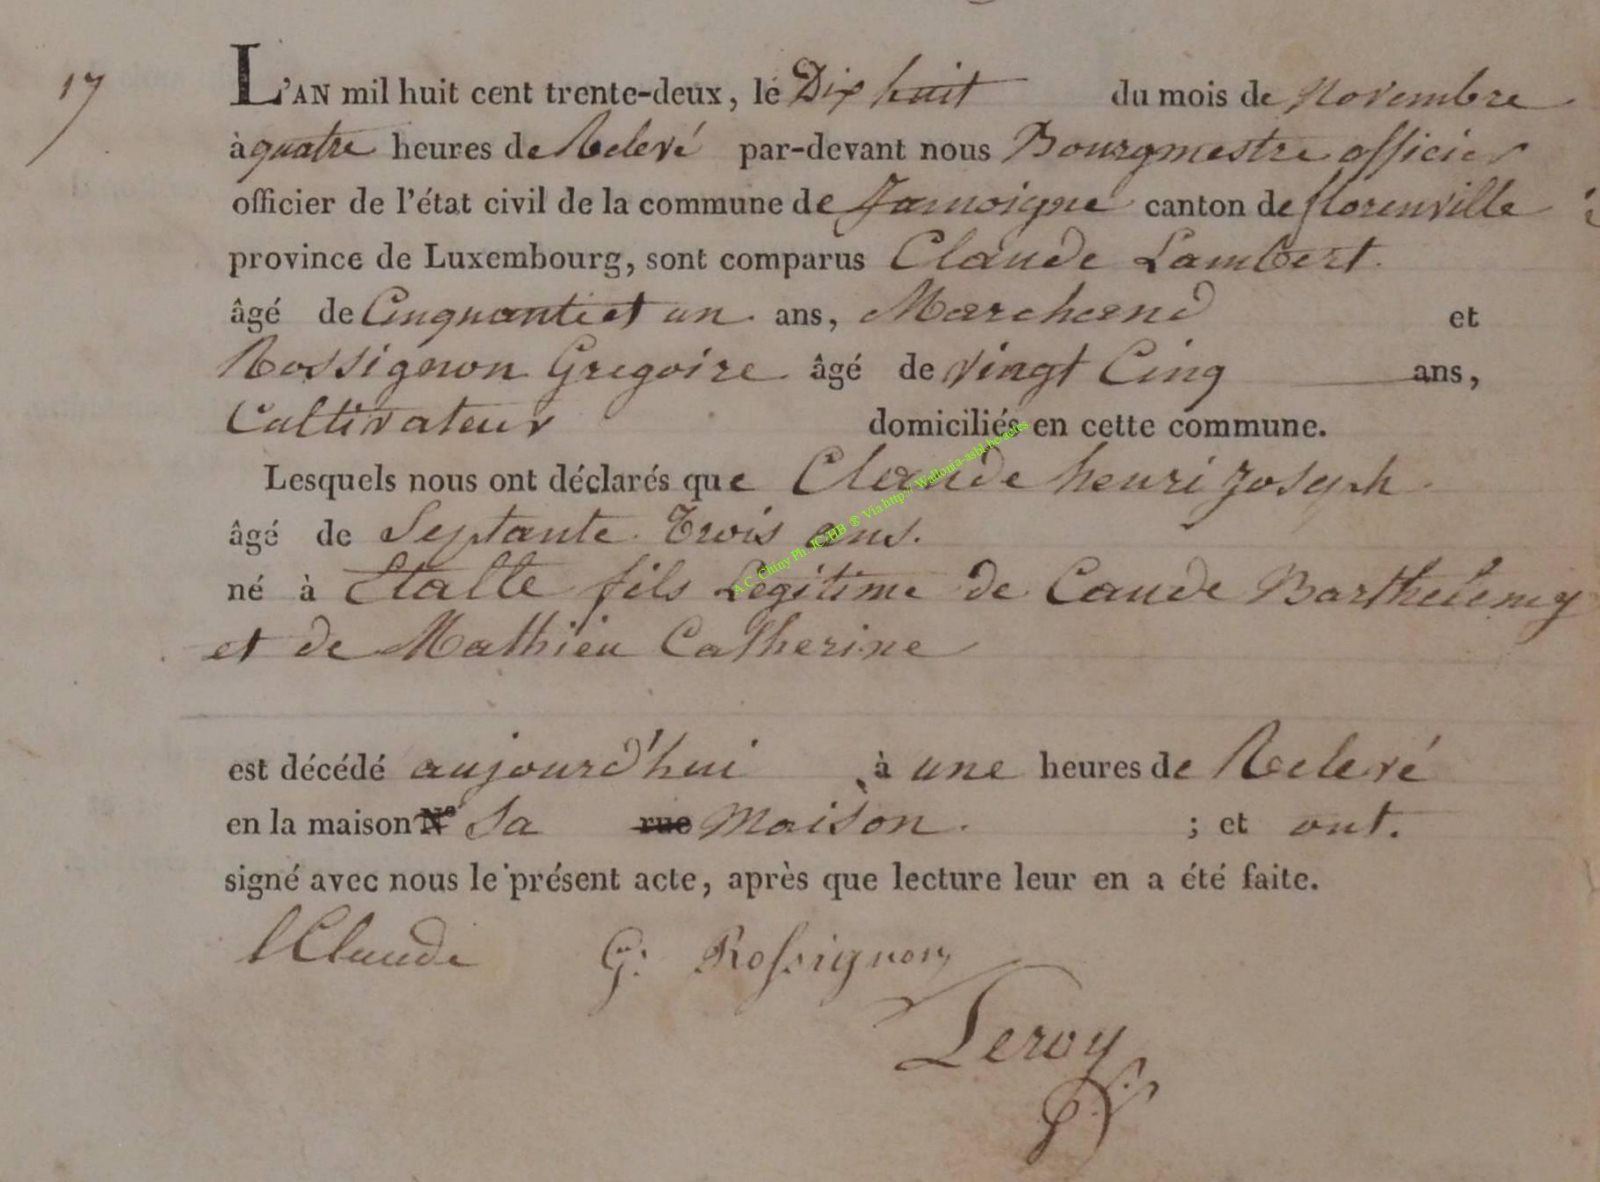 17
L'AN mil huit cent trente-deux, le Dix huit du mois de Novembre
à quatre heures de Relevé par-devant nous Bourgmestre officier
officier de l'état civil de la commune de Jamoigne canton de florenville
province de Luxembourg, sont comparus Claude Lambert.
âgé de Cinquante et un ans, Marchand et
Rossignon Gregoire âgé de vingt Cinq ans,
Cultivateur domiciliés en cette commune.
Lesquels nous ont déclarés que Claude henri Joseph
âgé de Septante Trois ans.
né à Etalle fils Legitime de Caude Barthelemy
et de Mathieu Catherine
est décédé aujourd'hui à une heures de Relevé
en la maison N° Sa rue Maison. ; et ont.
signé avec nous le présent acte, après que lecture leur en a été faite.
lClaude G: Rossignon
Leroy
A.C. Chiny Ph. JC.HB ® Via http:// Wallonia-asbl-be/actes